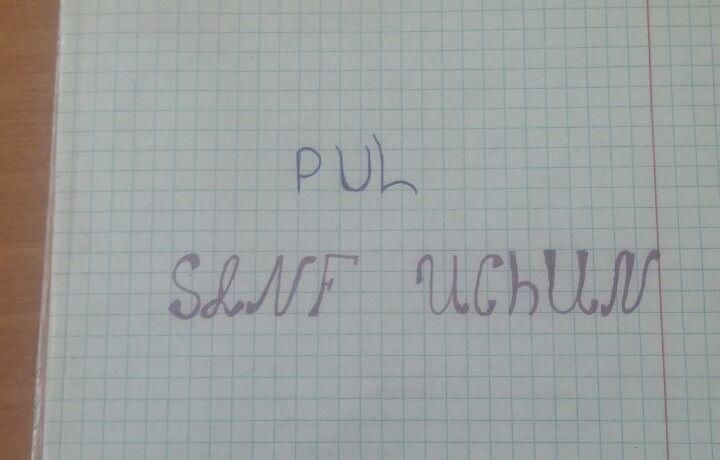 PUL
SLNF UCHUN